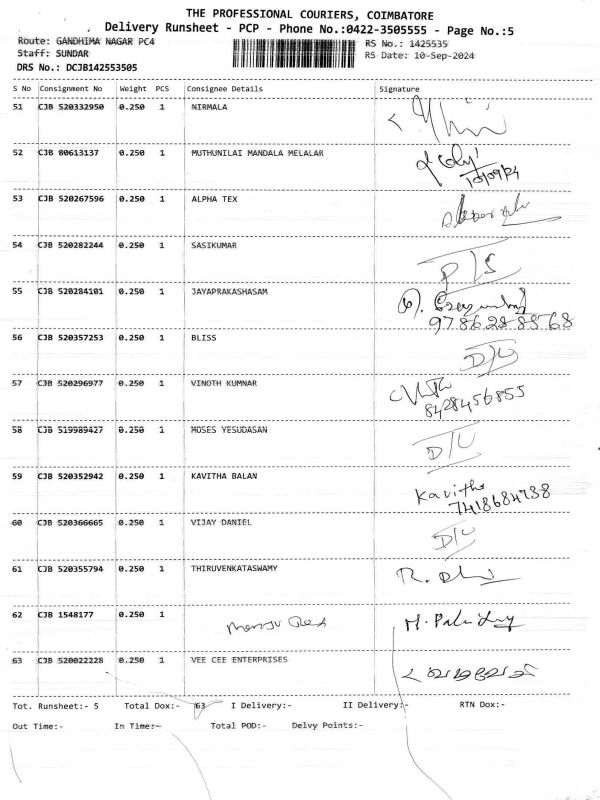 THE PROFESSIONAL COURIERS, COIMBATORE
Delivery Runsheet - PCP - Phone No.:0422-3505555 - Page No.:5
Route: GANDHIMA NAGAR PC4 RS No.: 1425535
Staff: SUNDAR RS Date: 10-Sep-2024
DRS No.: DCJB142553505
S No Consignment No Weight PCS Consignee Details Signature
51 CJB 520332950 0.250 1 NIRMALA
52 CJB 80613137 0.250 1 MUTHUNILAI MANDALA MELALAR
10/09/24
53 CJB 520267596 0.250 1 ALPHA TEX
54 CJB 520282244 0.250 1 SASIKUMAR
P/S
55 CJB 520284101 0.250 1 JAYAPRAKASHASAM
9786288568
56 CJB 520357253 0.250 1 BLISS
D/U
57 CJB 520296977 0.250 1 VINOTH KUMNAR
8428456855
58 CJB 519989427 0.250 1 MOSES YESUDASAN
D/U
59 CJB 520352942 0.250 1 KAVITHA BALAN
Kavitha
7418684738
60 CJB 520366665 0.250 1 VIJAY DANIEL
D/U
61 CJB 520355794 0.250 1 THIRUVENKATASWAMY
62 CJB 1548177 0.250 1
63 CJB 520022228 0.250 1 VEE CEE ENTERPRISES
Tot. Runsheet:- 5 Total Dox:- 63 I Delivery:- II Delivery:- RTN Dox:-
Out Time:- In Time:- Total POD:- Delvy Points:-